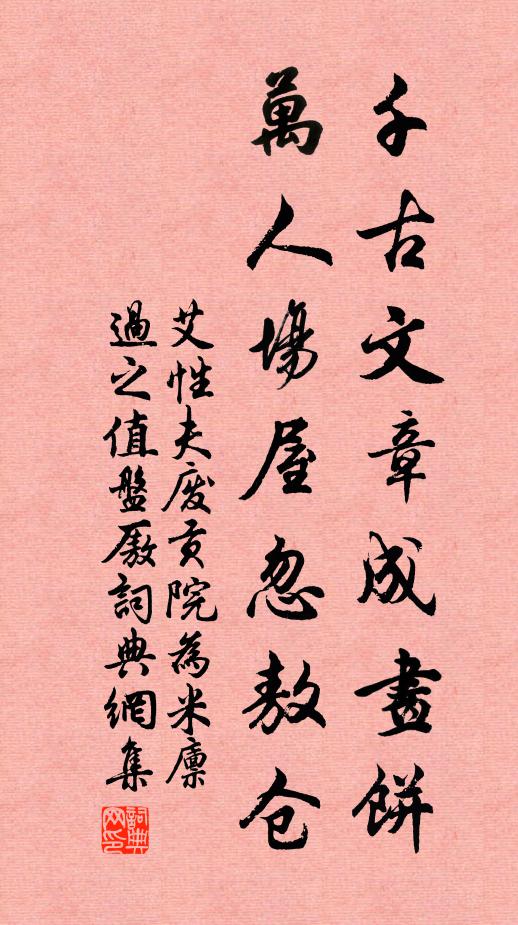 千古文章成畫餅
萬人場屋忽敖仓
艾性夫废贡院為米廪
過之值盤厫詞典網集
詞典网印